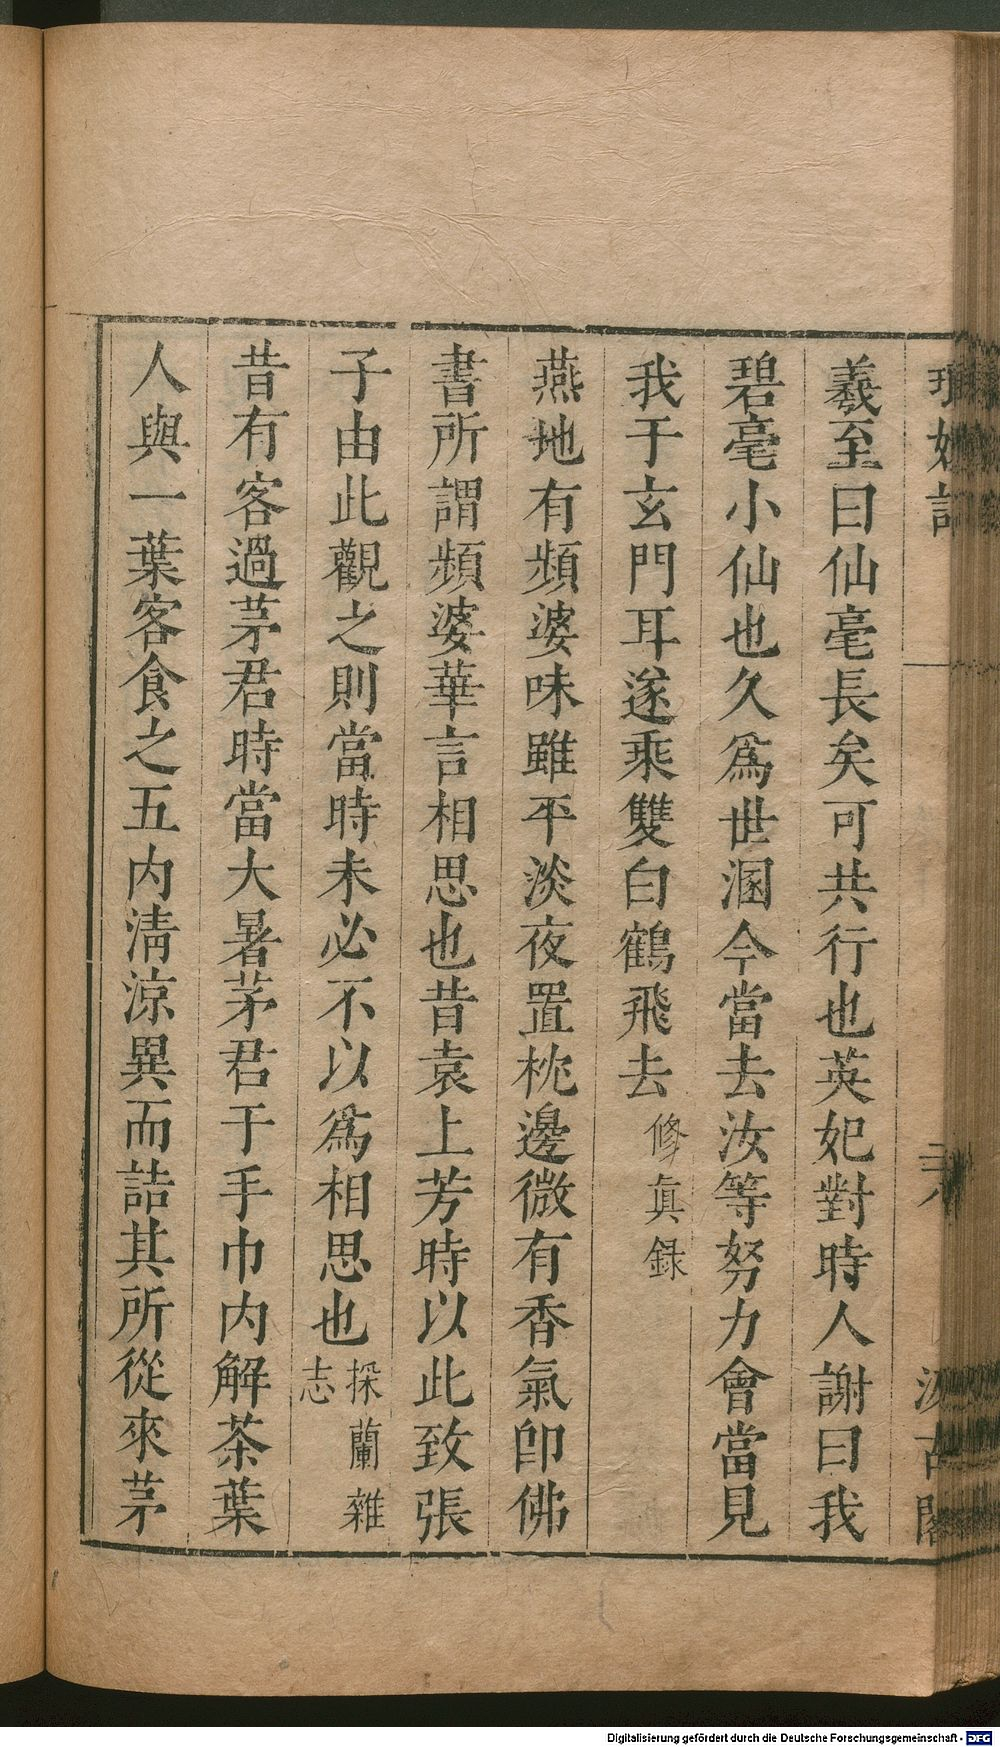 羲至曰仙毫長矣可共行也英妃對時人謝曰我
碧毫小仙也久爲世溷今當去汝等努力會當見
我于玄門耳遂乘雙白鶴飛去 修眞録
燕地有頻婆味雖平淡夜置枕邊微有香氣卽佛
書所謂頻婆華言相思也昔袁上芳時以此致張
子由此觀之則當時未必不以爲相思也 採蘭雜志
昔有客過茅君時當大暑茅君于手巾内解茶葉
人與一葉客食之五内清涼異而詰其所從來茅
Digitalisierung gefördert durch die Deutsche Forschungsgemeinschaft - DFG